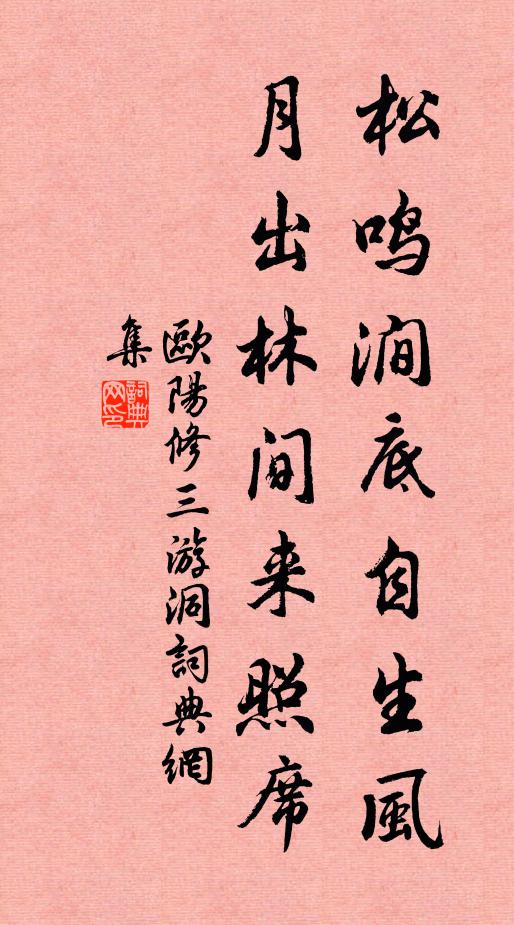 松鸣澗底自生風
月出林間来照席
歐陽修三游洞詞典網
集
詞典网印